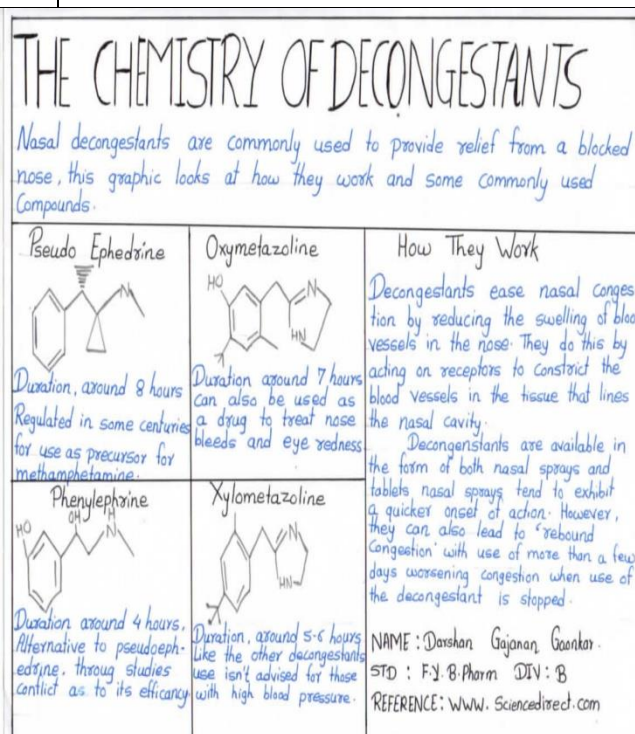 THE CHEMISTRY OF DECONGESTANTS
Nasal decongestants are commonly used to provide relief from a blocked
nose, this graphic looks at how they work and some commonly used
Compounds.
Pseudo Ephedrine
Duration, around 8 hours
Regulated in some centuries
for use as precursor for
methamphetamine.
Oxymetazoline
HO
N
HN
Duration around 7 hours
can also be used as
a drug to treat nose
bleeds and eye redness
Phenylephrine
HO
OH
H
N
Duration around 4 hours.
Alternative to pseudoeph-
edrine, throug studies
conflict as to its efficancy
Xylometazoline
N
HN
Duration, around 5-6 hours
Like the other decongestants
use isn't advised for those
with high blood pressure.
How They Work
Decongestants ease nasal conges
tion by reducing the swelling of bloo
vessels in the nose. They do this by
acting on receptors to constrict the
blood vessels in the tissue that lines
the nasal cavity.
Decongenstants are available in
the form of both nasal sprays and
tablets nasal sprays tend to exhibit
a quicker onset of action. However,
they can also lead to 'rebound
Congestion' with use of more than a few
days worsening congestion when use of
the decongestant is stopped.
NAME : Darshan Gajanan Gaonkar.
STD : F.Y. B.Pharm DIV : B
REFERENCE: WWW. Sciencedirect.com